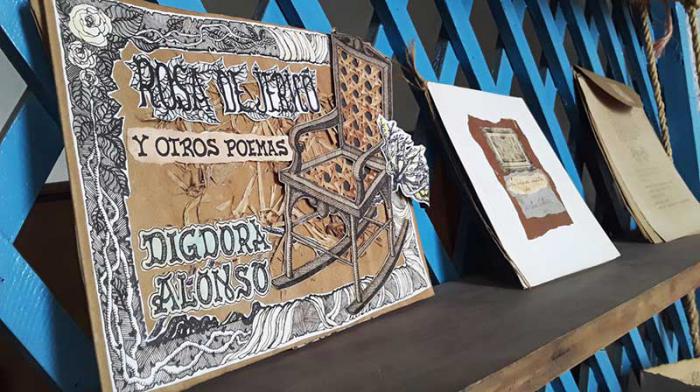 ROSA DE JERICÓ
Y OTROS POEMAS
DIGDORA
ALONSO